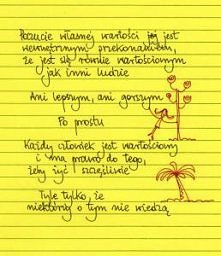 Poczucie własnej wartości jest
wewnętrznym przekonaniem,
że jest się równie wartościowym
jak inni ludzie
Ani lepszym, ani gorszym
Po prostu
Każdy człowiek jest wartościowy
i ma prawo do tego,
żeby żyć szczęśliwie
Tyle tylko, że
niektórzy o tym nie wiedzą